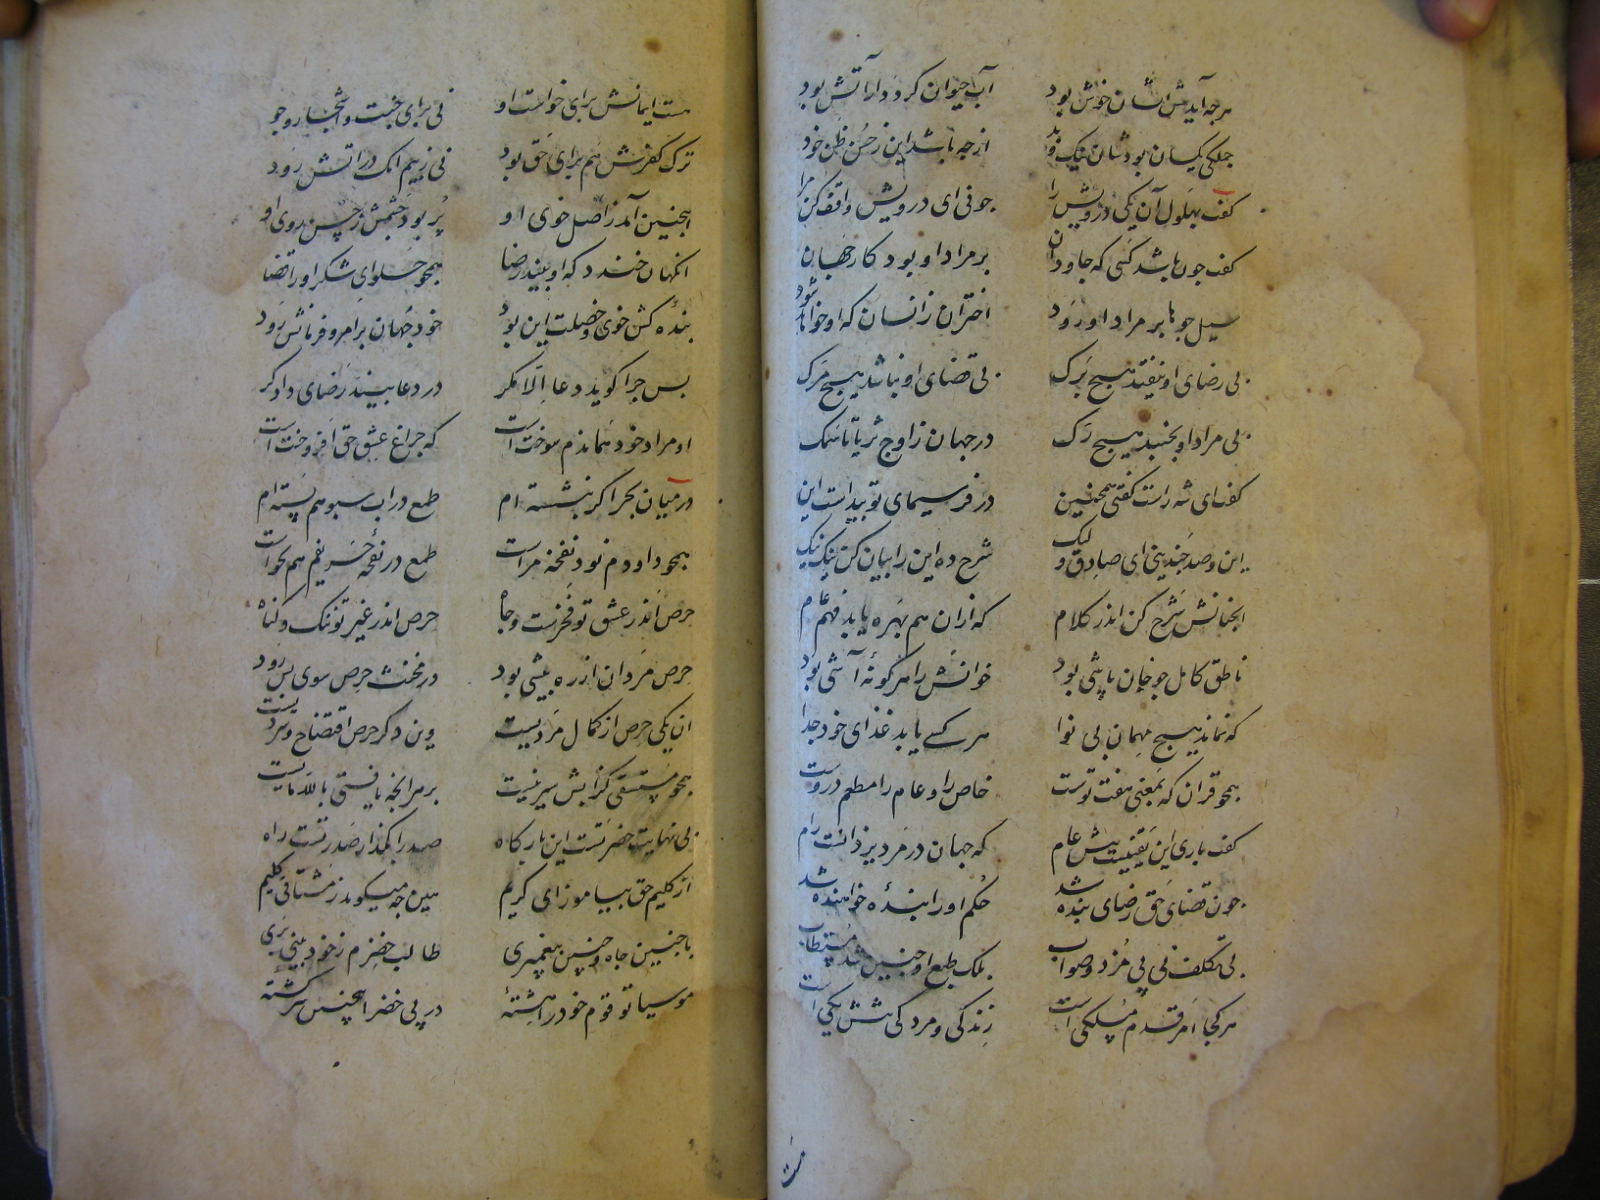 هرچه آید پیش ایشان خوش بود آب حیوان گردد ار آتش بود
جملگی یکسان بودشان نیک و بد از چه باشد این ز حسن ظن خود
گفت بهلول آن یکی درویش را چونی ای درویش واقف کن مرا
گفت چون باشد کسی که جاودان بر مراد او بود کار جهان
سیل جوها بر مراد او رود اختران زانسان که او خواهد شود
بی رضای او نیفتد هیچ برگ بی قضای او نباشد هیچ مرگ
بی مراد او نجنبد هیچ رگ در جهان ز اوج ثریا تا سمک
گفت ای شه راست گفتی همچنین در فر سیمای تو پیداست این
این و صد چندینی ای صادق ولیک شرح ده این را بیان کن نیک نیک
آنچنانش شرح کن اندر کلام که از آن هم بهره یابد فهم عام
ناطق کامل چو خوان باشی بود خوانش را هر گونهٔ آشی بود
که نماند هیچ مهمان بی نوا هر کسی یابد غذای خود جدا
همچو قران که بمعنی هفت توست خاص را و عام را مطعم دروست
گفت باری این یقینست پیش عام که جهان در امر یزدانست رام
چون قضای حق رضای بنده شد حکم او را بندهٔ خواهنده شد
بی تکلف نی پی مزد و صواب بلک طبع او چنین شد مستطاب
هر کجا امر قدم مسلکی است زندگی و مردگی پیشش یکی است
هست ایمانش برای خواست او نی برای جنت و اشجار و جو
ترک کفرش هم برای حق بود نی ز بیم آنک در آتش رود
اینچنین آمد ز اصل خوی او
آنکهان خندد که او بیند رضا همچو حلوای شکر او را قضا
بندهٔ کش خوی و خصلت این بود خود جهان بر امر و فرمانش رود
پس چرا گوید دعا الا مگر در دعا بیند رضای دادگر
که چراغ عشق حق افروختست
در میان بحر اگر بنشسته ام طمع در آب سبو هم بسته ام
همچو داودم نود نعجه مراست طمع در نعجه حریفم هم بخاست
حرص اندر عشق تو فخرست و جاه حرص اندر غیر تو ننگ و گناه
حرص مردان از ره پیشی بود در مخنث حرص سوی پس رود
آن یکی حرص از کمال مردیست وین دگر حرص افتضاح و سردیست
همچو مستسقی کز آبش سیر نیست بر هر آنچه یافتی بالله مایست
بی نهایت حضرتست این بارگاه صدر را بگذار صدر تست راه
از کلیم حق بیاموز ای کریم بین چه میگوید ز مشتاقی کلیم
با چنین جاه و چنین پیغمبری طالب خضرم ز خود بینی بری
موسیا تو قوم خود را هشتهٔ در پی خضر اینچنین سرگشتهٔ